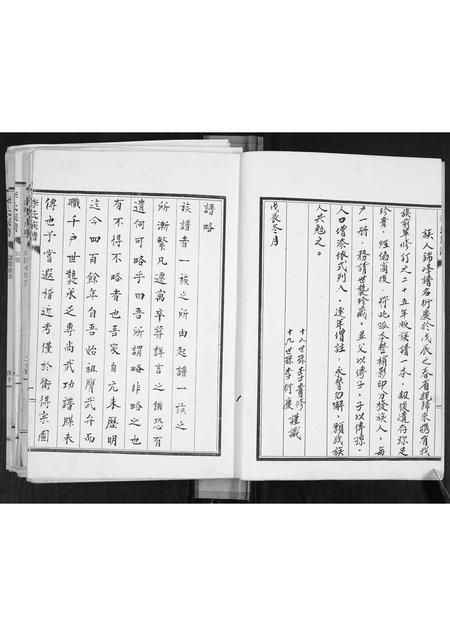 族人錦峰譜名衍慶於戊辰之春省親歸來携有我
族前軍修訂之二十五年板族譜一本，劫後遺存弥足
珍貴，經倆商後，將此孤本整補影印分發族人，每
户一册，務請世襲珍藏，並父以傳子，子以傳孫，
人口增添依式列入，逐年增註，永誓勿懈，願我族
人共勉之。
戊辰冬月
十八世孫李貴修 謹識
十九世孫李衍慶
譜略
族譜者一族之所由起譜一族之
所漸繁凡遷寓卒葬詳言之猶恐有
遺何可略乎曰吾所謂略非略之也
有不得不略者也吾家自元末歷明
迄今四百餘年自吾始祖膺武升而
職千戸世襲承之專尚武功譜牒未
傳也予嘗遐稽近考僅於衛得宗圖
李氏族譜